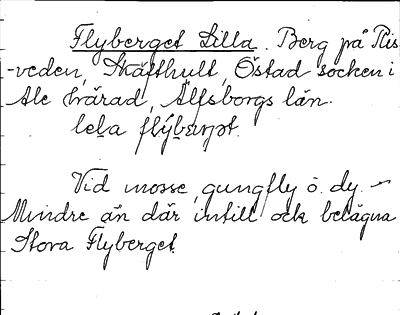 Flyberget Lilla. Berg på Ris-
-veden, Skäfthult, Östad socken i
Ale härad, Älfsborgs län.
lela flýbærjət.
Vid mosse, gungfly o. dy. –
Mindre än där intill ock belägna
Stora Flyberget.